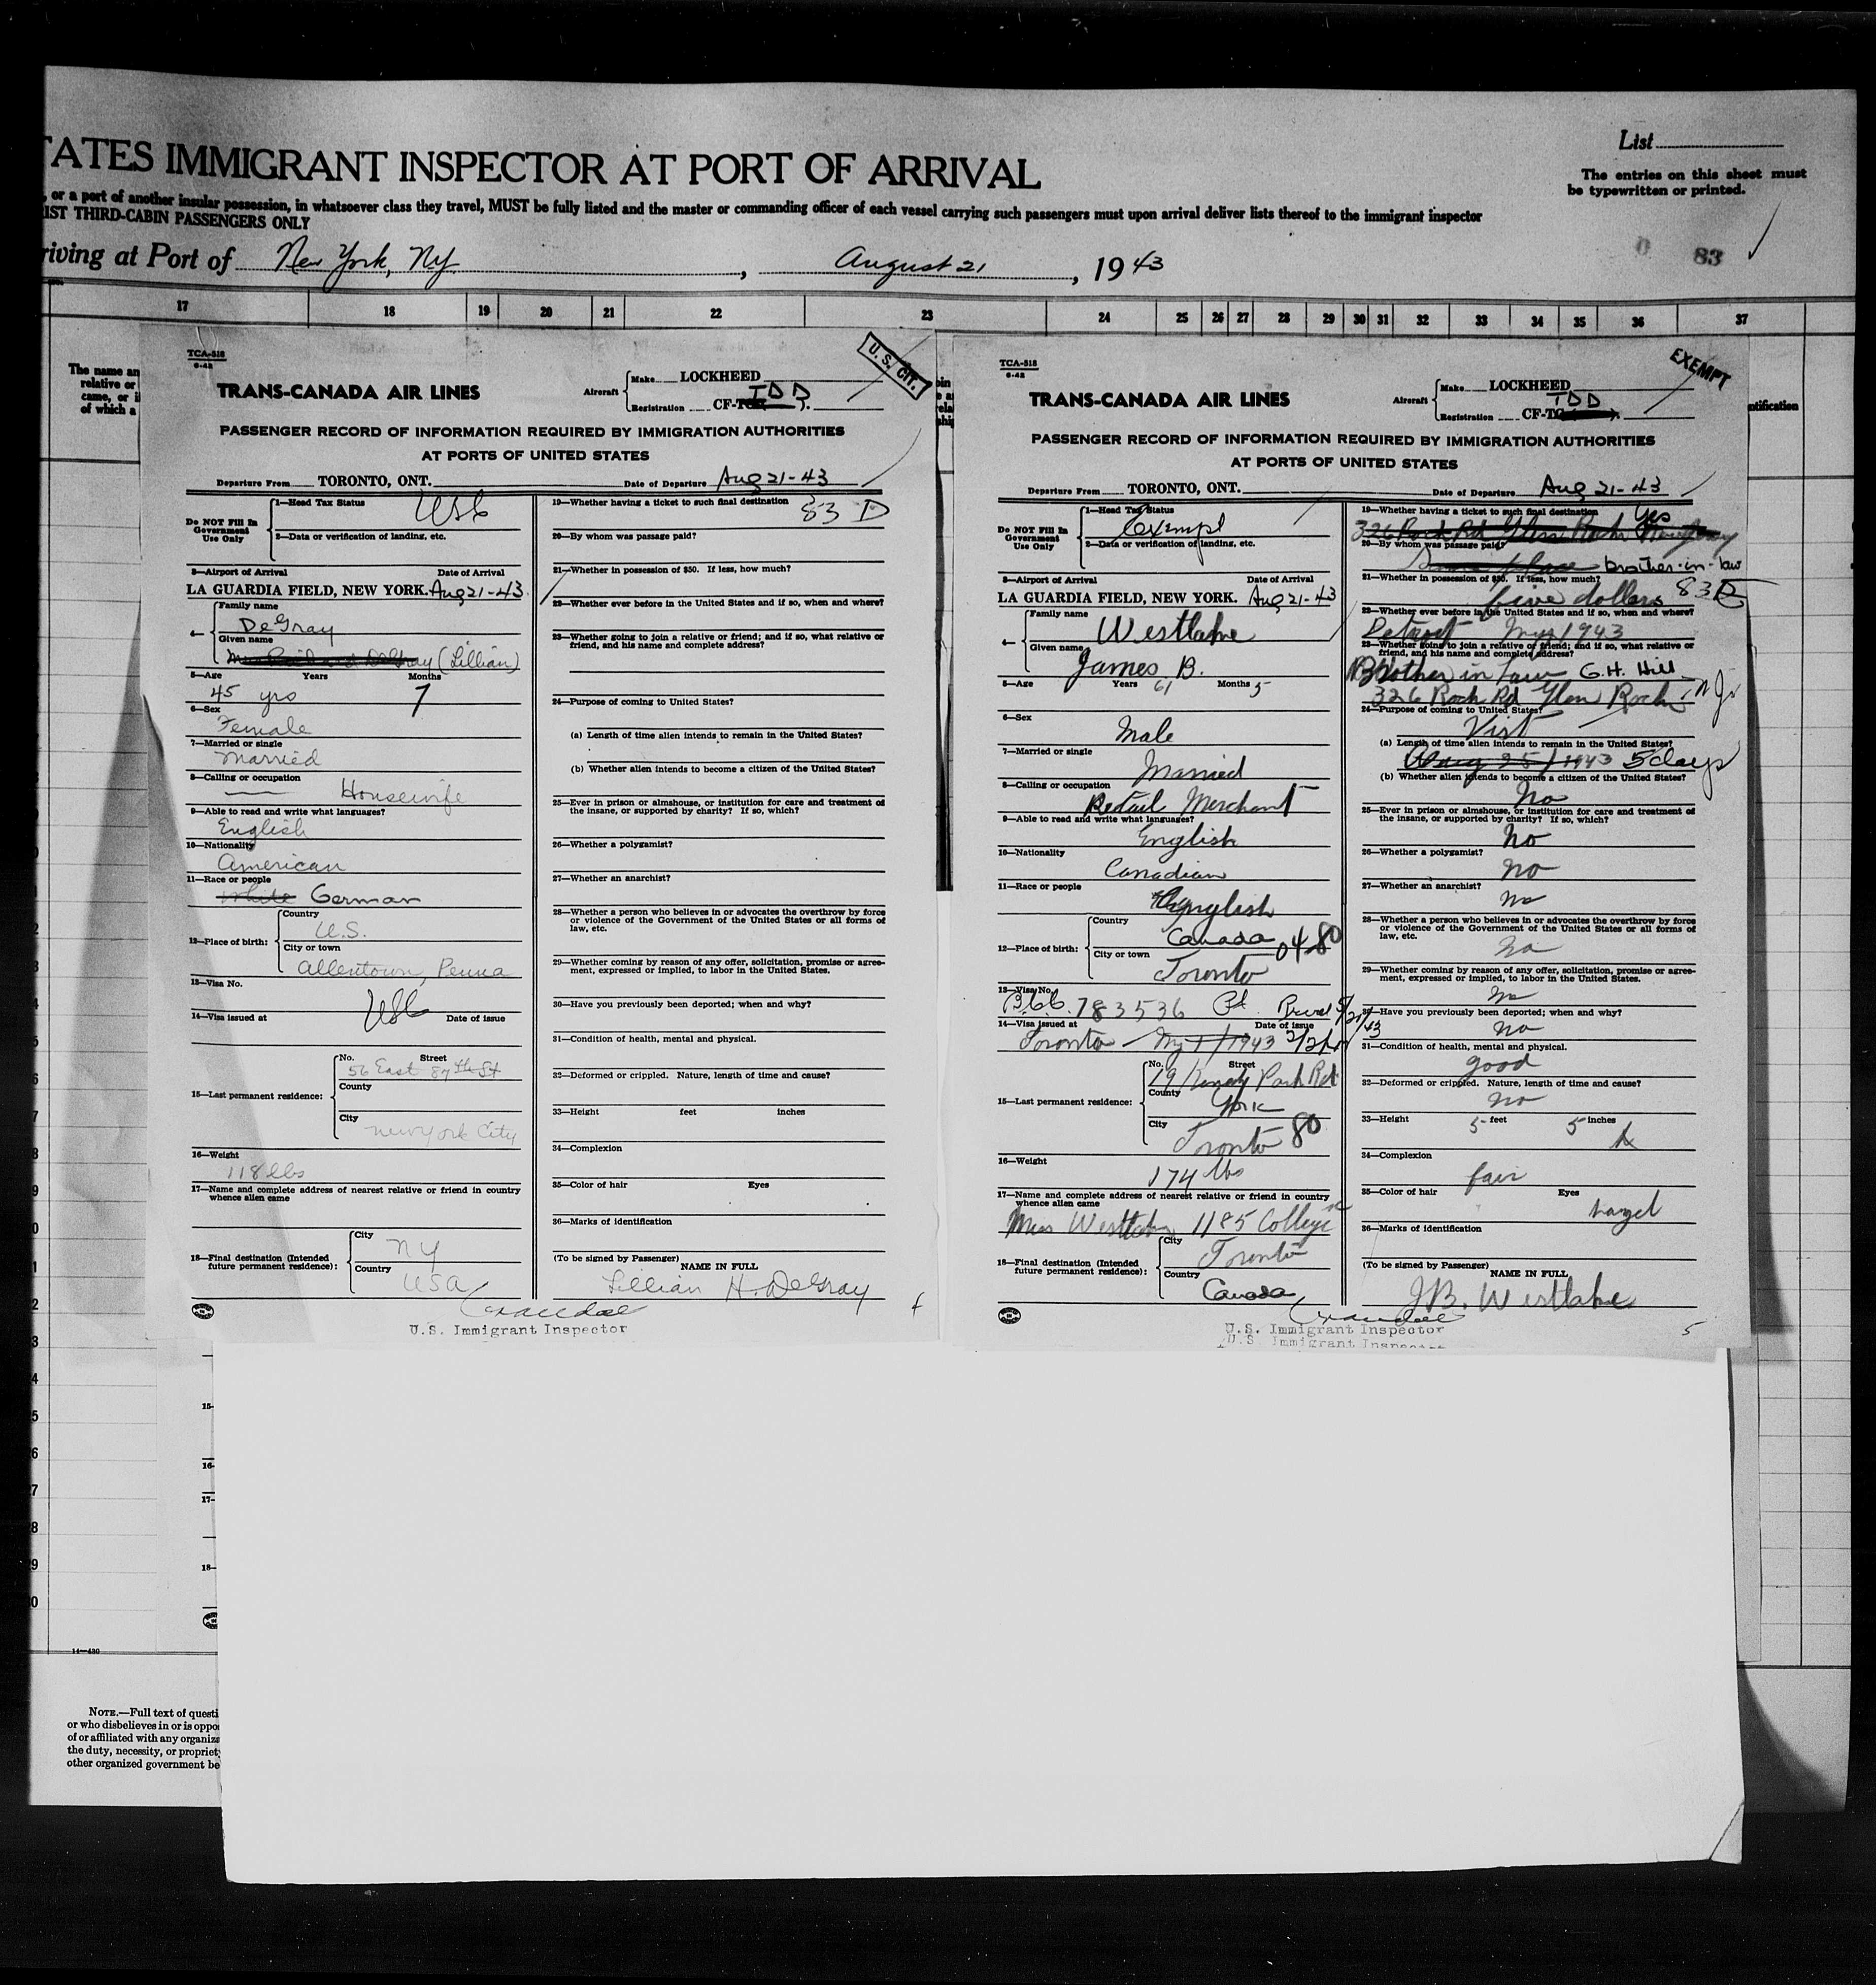 TATES IMMIGRANT INSPECTOR AT PORT OF ARRIVAL
List
The entries on this sheet must
be typewritten or printed.
, or a port of another insular possession, in whatsoever class they travel, MUST be fully listed and the master or commanding officer of each vessel carrying such passengers must upon arrival deliver lists thereof to the immigrant inspector
IST THIRD-CABIN PASSENGERS ONLY
riving at Port of New York, Ny, August 21, 1943
83
17 18 19 20 21 22 23 24 25 26 27 28 29 30 31 32 33 34 35 36 37
The name an
relative or
came, or i
of which a
TCA-518
6-42
U.S. CIT.
TRANS-CANADA AIR LINES
Aircraft
Make LOCKHEED
Registration CF-TDD
PASSENGER RECORD OF INFORMATION REQUIRED BY IMMIGRATION AUTHORITIES
AT PORTS OF UNITED STATES
Departure From TORONTO, ONT. Date of Departure Aug 21-43
Do NOT Fill In
Government
Use Only
1—Head Tax Status USC
2—Data or verification of landing, etc.
3—Airport of Arrival Date of Arrival
LA GUARDIA FIELD, NEW YORK. Aug 21-43
4—
Family name
DeGray
Given name
(Lillian)
5—Age Years Months
45 yrs 7
6—Sex
Female
7—Married or single
Married
8—Calling or occupation
Housewife
9—Able to read and write what languages?
English
10—Nationality
American
11—Race or people
white German
12—Place of birth:
Country
U.S.
City or town
Allentown, Penna
13—Visa No.
USC
14—Visa issued at Date of issue
15—Last permanent residence:
No. Street
56 East 87th St
County
City
New York City
16—Weight
118 lbs
17—Name and complete address of nearest relative or friend in country
whence alien came
18—Final destination (Intended
future permanent residence):
City
NY
Country
USA
19—Whether having a ticket to such final destination
83 D
20—By whom was passage paid?
21—Whether in possession of $50. If less, how much?
22—Whether ever before in the United States and if so, when and where?
23—Whether going to join a relative or friend; and if so, what relative or
friend, and his name and complete address?
24—Purpose of coming to United States?
(a) Length of time alien intends to remain in the United States?
(b) Whether alien intends to become a citizen of the United States?
25—Ever in prison or almshouse, or institution for care and treatment of
the insane, or supported by charity? If so, which?
26—Whether a polygamist?
27—Whether an anarchist?
28—Whether a person who believes in or advocates the overthrow by force
or violence of the Government of the United States or all forms of
law, etc.
29—Whether coming by reason of any offer, solicitation, promise or agree-
ment, expressed or implied, to labor in the United States.
30—Have you previously been deported; when and why?
31—Condition of health, mental and physical.
32—Deformed or crippled. Nature, length of time and cause?
33—Height feet inches
34—Complexion
35—Color of hair Eyes
36—Marks of identification
(To be signed by Passenger)
NAME IN FULL
Lillian H. DeGray
U.S. Immigrant Inspector
TCA-518
6-42
EXEMPT
TRANS-CANADA AIR LINES
Aircraft
Make LOCKHEED
Registration CF-TDD
PASSENGER RECORD OF INFORMATION REQUIRED BY IMMIGRATION AUTHORITIES
AT PORTS OF UNITED STATES
Departure From TORONTO, ONT. Date of Departure Aug 21-43
Do NOT Fill In
Government
Use Only
1—Head Tax Status
Exempt
2—Data or verification of landing, etc.
3—Airport of Arrival Date of Arrival
LA GUARDIA FIELD, NEW YORK. Aug 21-43
4—
Family name
Westlake
Given name
James B.
5—Age Years 61 Months 5
6—Sex
Male
7—Married or single
Married
8—Calling or occupation
Retail Merchant
9—Able to read and write what languages?
English
10—Nationality
Canadian
11—Race or people
English
12—Place of birth:
Country
Canada 04-80
City or town
Toronto
13—Visa No.
B.C.C. 783536
14—Visa issued at Date of issue
Toronto 1943
15—Last permanent residence:
No. Street
19 Park Rd
County
York
City
Toronto 80
16—Weight
174 lbs
17—Name and complete address of nearest relative or friend in country
whence alien came
Miss Westlake 1185 College
18—Final destination (Intended
future permanent residence):
City
Toronto
Country
Canada
19—Whether having a ticket to such final destination
Yes
326 Rock Rd Glen Rock New Jersey
20—By whom was passage paid?
brother-in-law
21—Whether in possession of $50. If less, how much?
five dollars 83 E
22—Whether ever before in the United States and if so, when and where?
Detroit 1943
23—Whether going to join a relative or friend; and if so, what relative or
friend, and his name and complete address?
Brother in Law G.H. Hill
326 Rock Rd Glen Rock, N.J.
24—Purpose of coming to United States?
Visit
(a) Length of time alien intends to remain in the United States?
1943 5 days
(b) Whether alien intends to become a citizen of the United States?
No
25—Ever in prison or almshouse, or institution for care and treatment of
the insane, or supported by charity? If so, which?
No
26—Whether a polygamist?
No
27—Whether an anarchist?
No
28—Whether a person who believes in or advocates the overthrow by force
or violence of the Government of the United States or all forms of
law, etc.
No
29—Whether coming by reason of any offer, solicitation, promise or agree-
ment, expressed or implied, to labor in the United States.
No
30—Have you previously been deported; when and why?
No
31—Condition of health, mental and physical.
good
32—Deformed or crippled. Nature, length of time and cause?
No
33—Height 5 feet 5 inches
34—Complexion
fair
35—Color of hair Eyes
hazel
36—Marks of identification
(To be signed by Passenger)
NAME IN FULL
J.B. Westlake
U.S. Immigrant Inspector
U.S. Immigrant Inspector
5
ntification
15-
16-
17-
18-
14—430
NOTE.—Full text of questi
or who disbelieves in or is oppo
of or affiliated with any organiza
the duty, necessity, or propriet
other organized government be